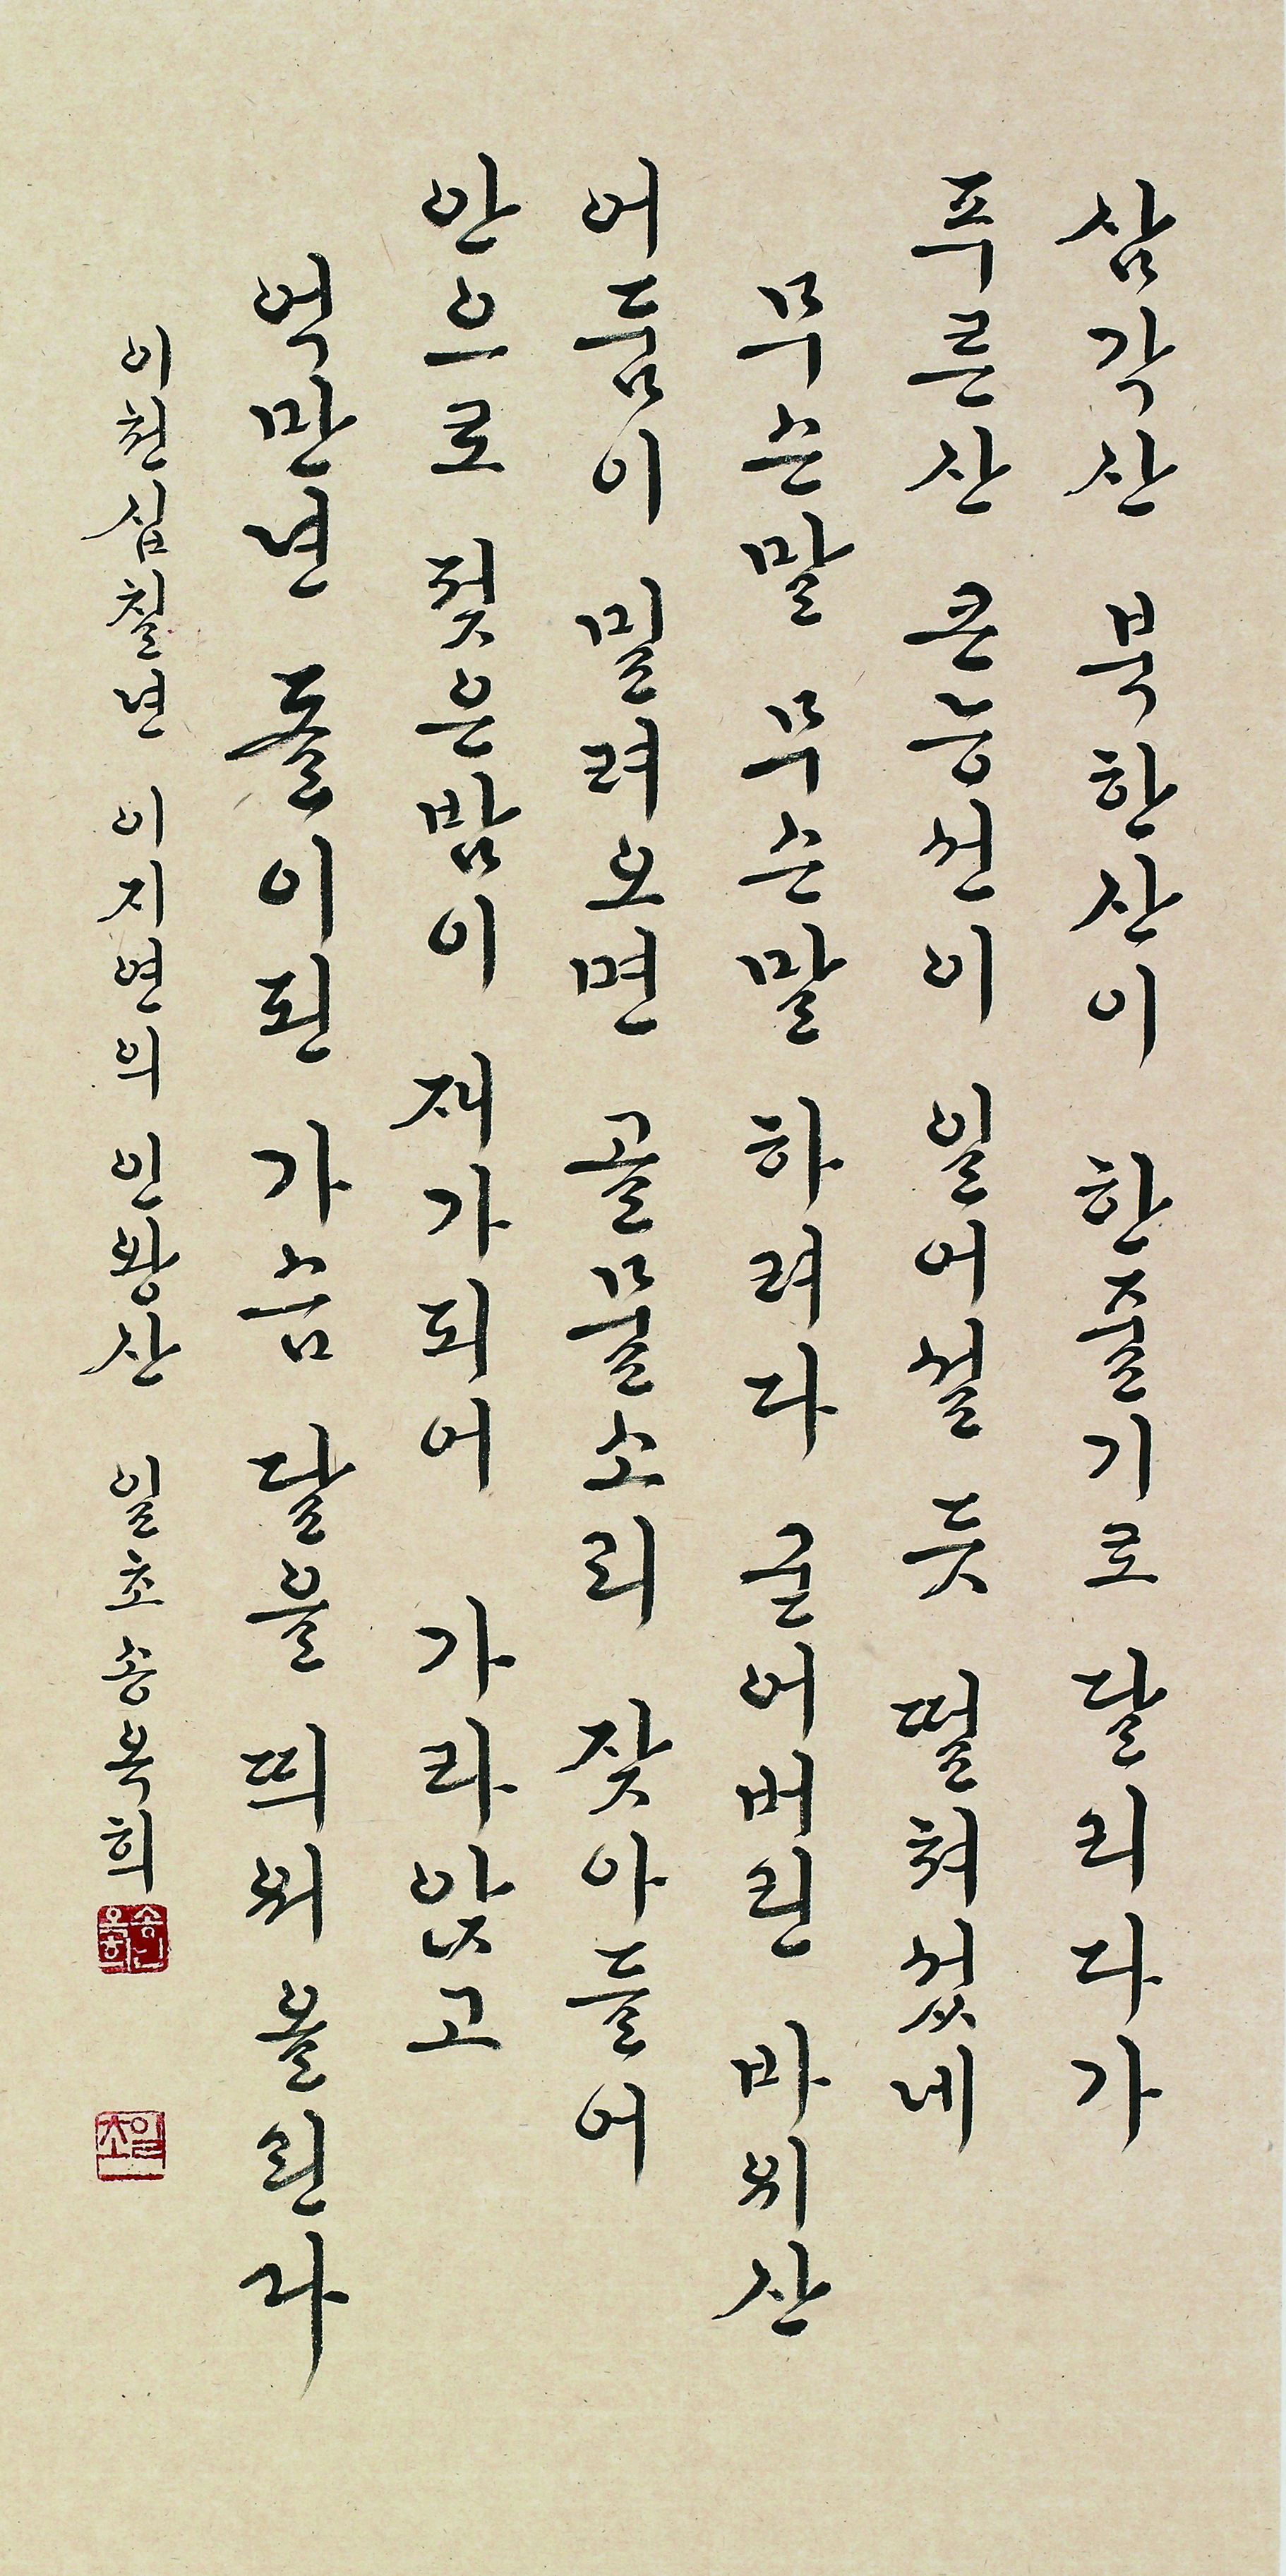 삼각산 북한산이 한줄기로 달리다가
푸른산 큰능선이 일어설 듯 떨쳐섰네
무슨말 무슨말 하려다 굳어버린 바위산
어둠이 밀려오면 골물소리 잦아들어
안으로 젖은밤이 재가되어 가라앉고
억만년 돌이된 가슴 달을 띄워 올린다
이천십칠년 이지연의 인왕산 일초 송복희
송복희인
일초